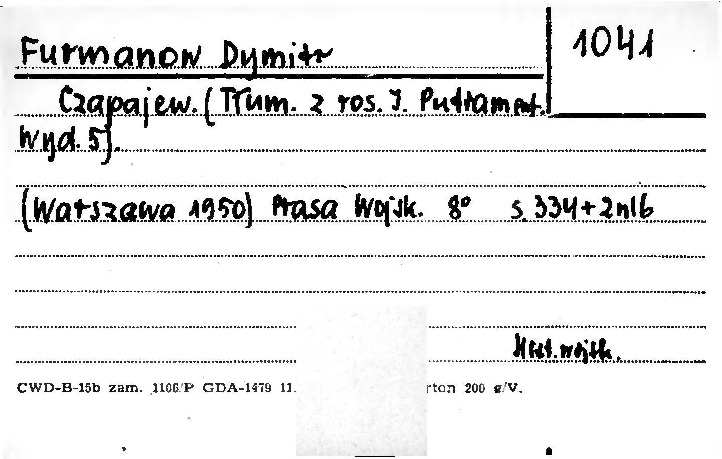 Furmanow Dymitr
1041
Czapajew. (Tłum. z ros. J. Putrament.
Wyd. 5).
(Warszawa 1950) Prasa Wojsk. 8° s. 334+2nlb
Hist. wojsk.
CWD-B-15b zam. 1106/P GDA-1479 11. rton 200 g/V.